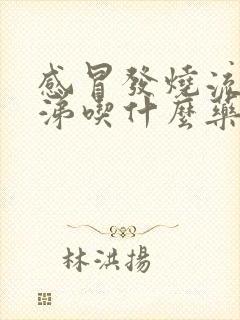 感冒發燒流
涕喫什麼藥
林洪揚